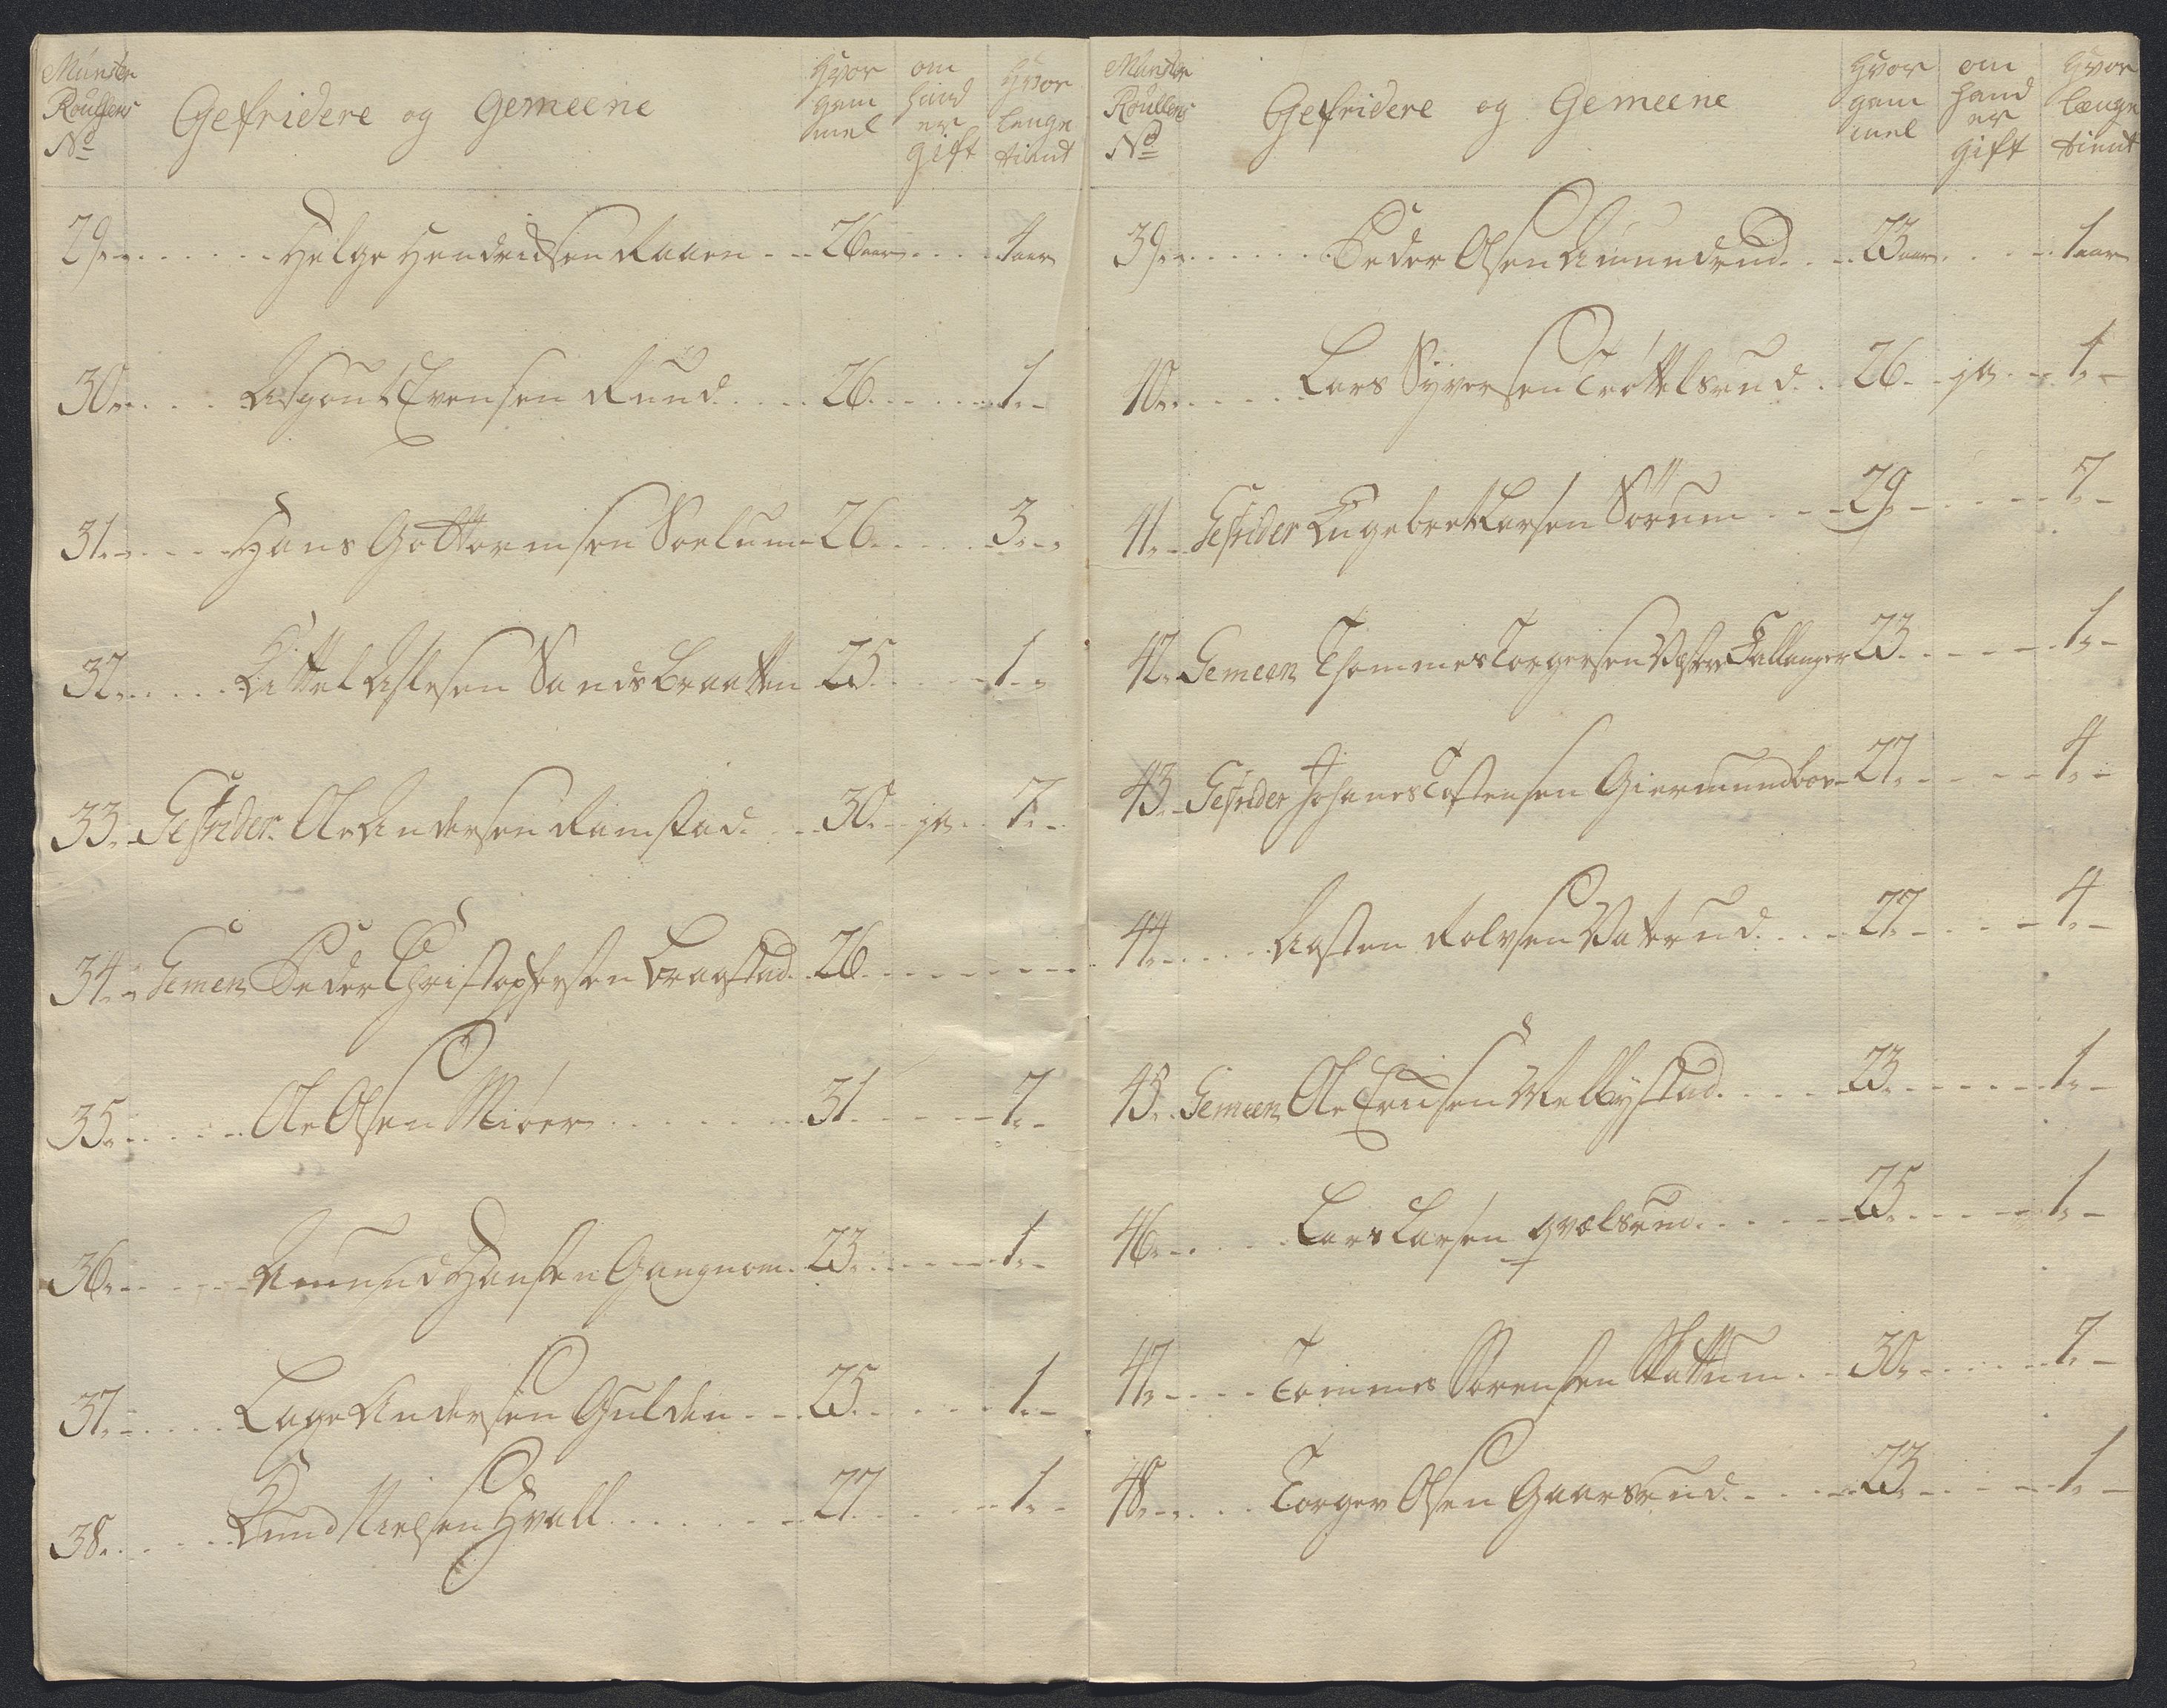 Munster Roullens No
Gefridere og Gemeene
Hvor gam mel
om hand er gift
Hvor lenge tient
29. Helge Hendrichsen Raaen 26 aar 4 aar
30. Evensen Rund 26 1
31. Hans Gottormsen Soelum 26 3
32. Kittel Sandsbraatten 25 1
33. Gefrider Ole Andersen Ramstad 30 ja 7
34. Gemen Peder Christophersen Bragstad 26
35. Ole Olsen Miøer 31 7
36. Amund Hansen Gangnom 23 1
37. Lage Andersen Gulden 25 1
38. Knud Nielsen Hvall 27 1
Munster Roullens No
Gefridere og Gemeene
Hvor gam mel
om hand er gift
Hvor længe tient
39. Peder Olsen Amundrud 23 aar 1 aar
40. Lars Syversen Trøttelsrud 26 ja 1
41. Gefrider Engebret Larsen Sørum 29 7
42. Gemeen Thommes Torgersen Vestre Tallanger 23 1
43. Gefrider Johanes Tostensen Giermundboe 27 4
44. Rolvsen 27 4
45. Gemeen Ole Erichsen Melbystad 23 1
46. Lars Larsen qvælsrud 25 1
47. Tommes Sørensen Skattum 30 7
48. Torger Olsen Gaarsrud 23 1